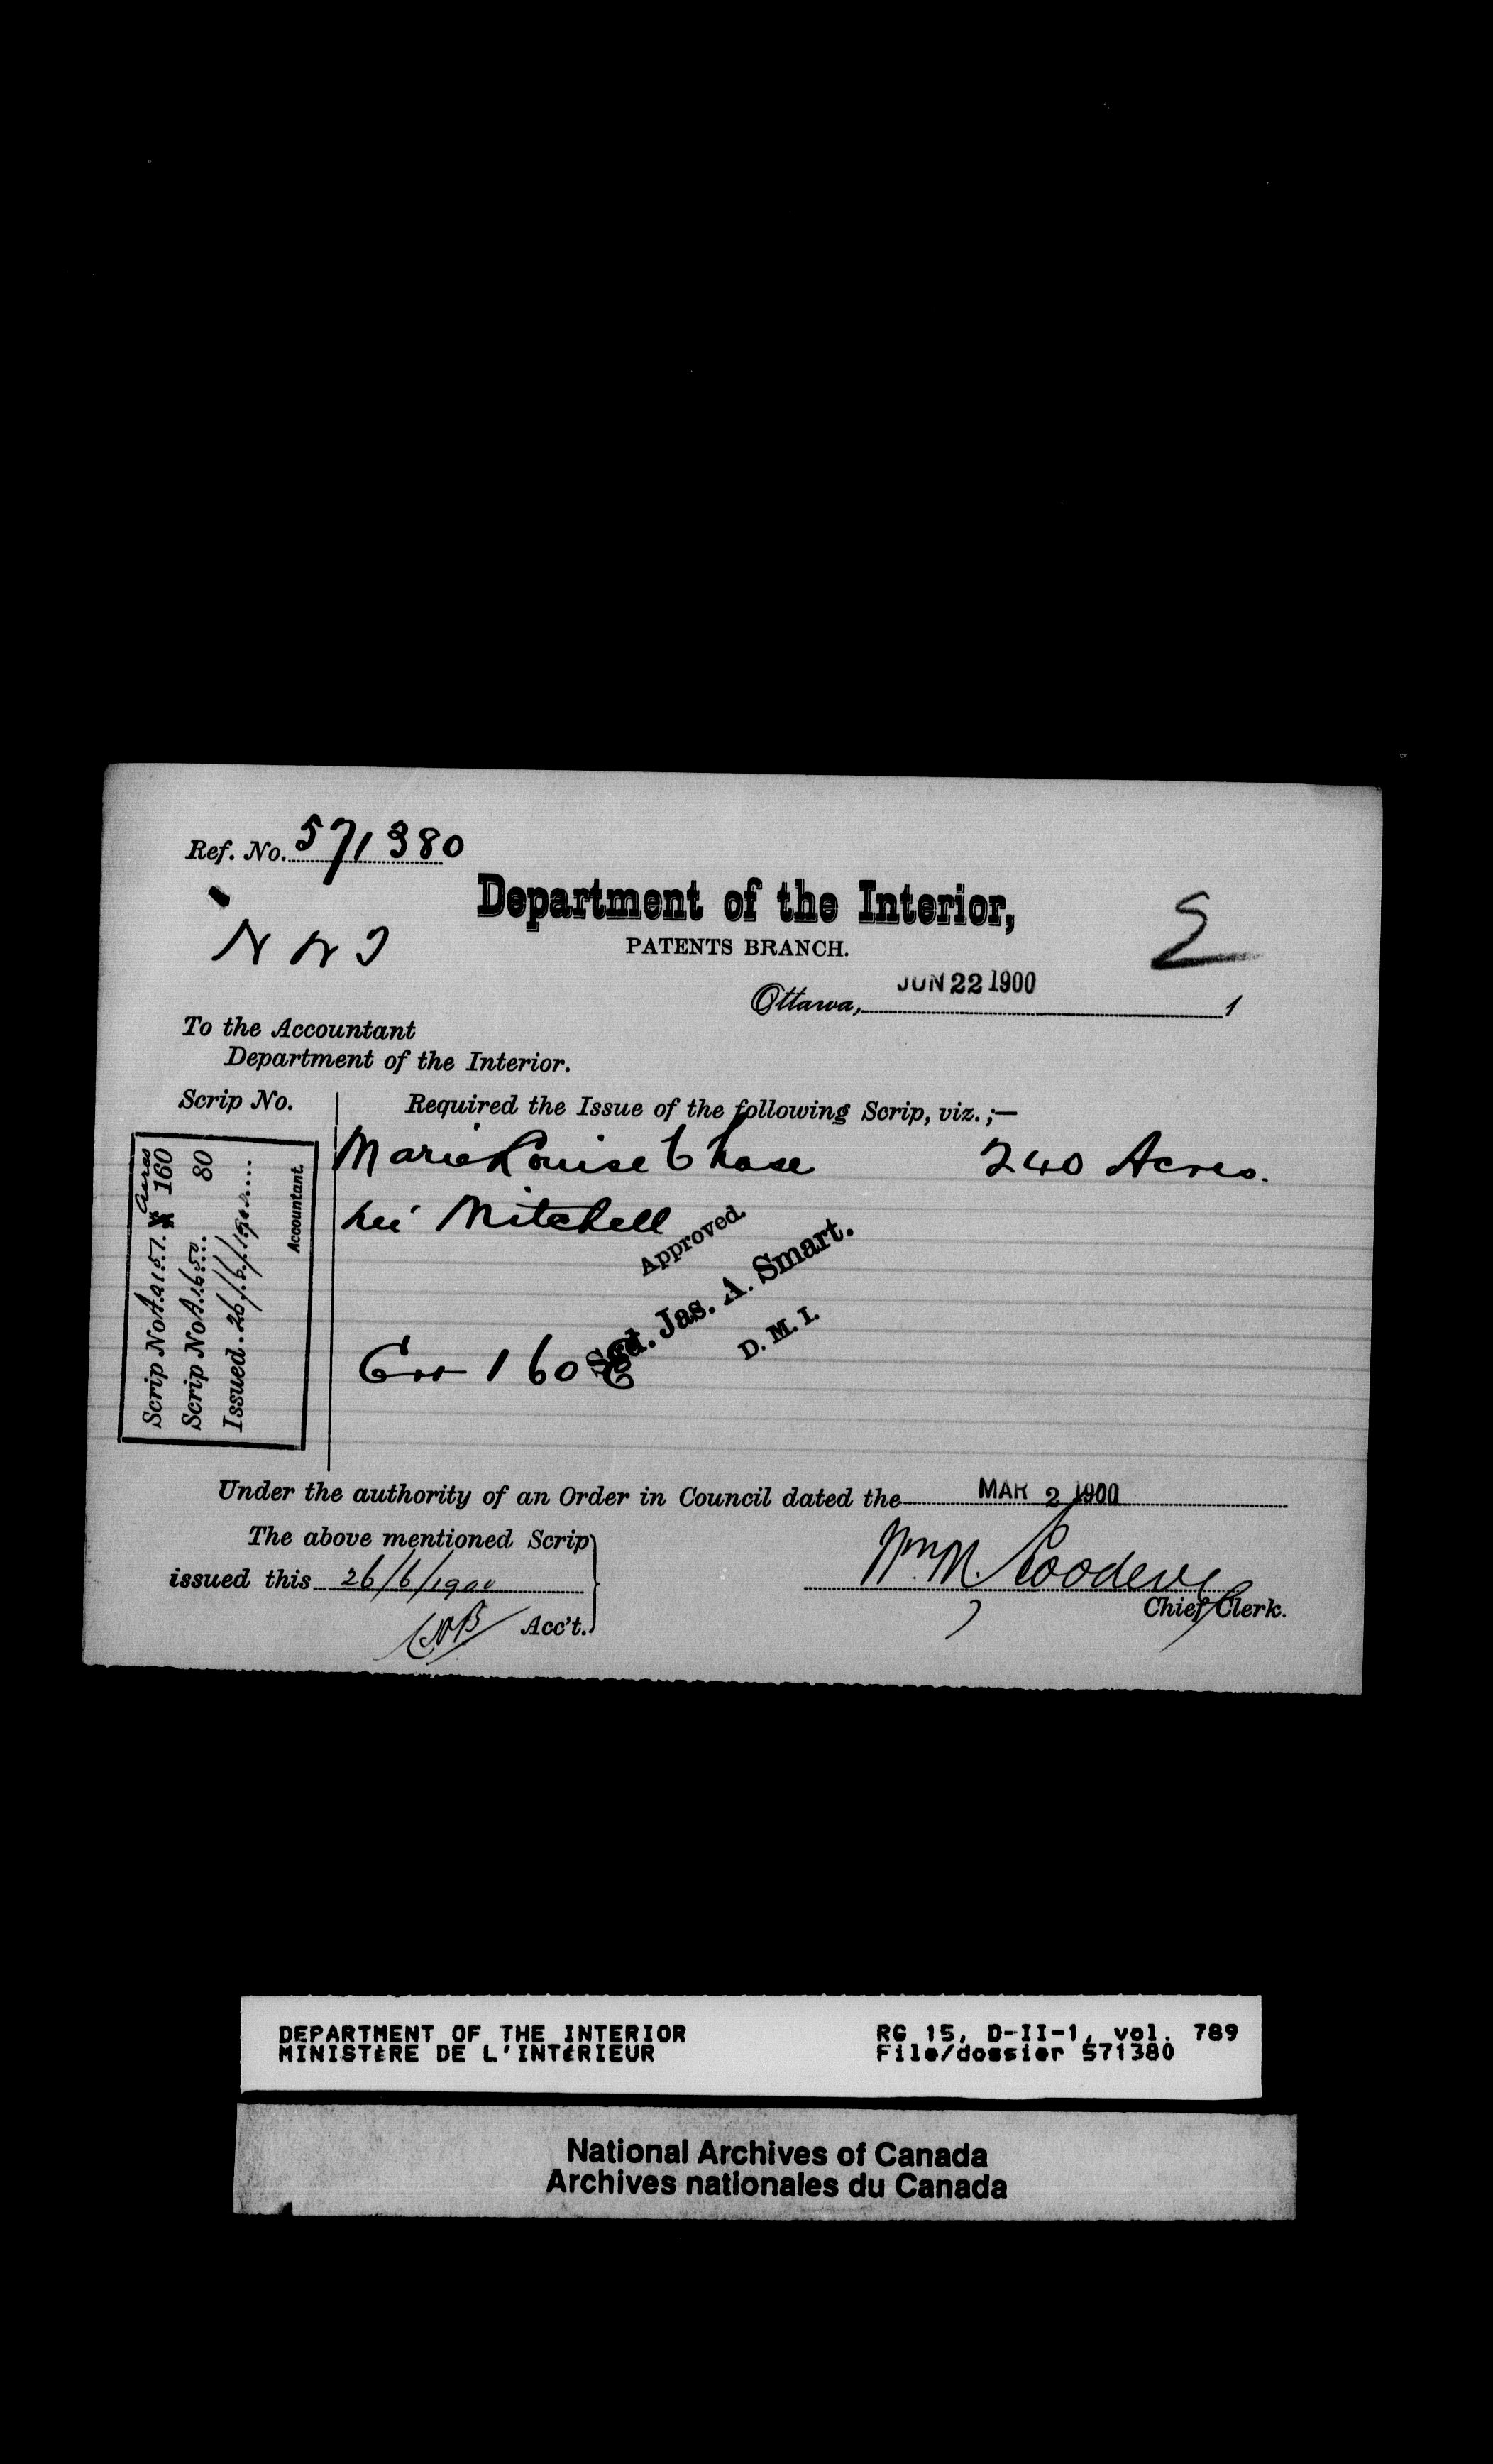 Ref. No. 571380
N W T
Department of the Interior,
PATENTS BRANCH.
Ottawa, JUN 22 1900 1
To the Accountant
Department of the Interior.
Scrip No.
Required the Issue of the following Scrip, viz.;—
Marie Louise Chase 240 Acres.
née Mitchell
Approved.
Sgd. Jas. A. Smart.
D. M. I.
160
Acres
Scrip No A.2157. 160
Scrip No A.1650. 80
Issued. 26/6/1900
Accountant.
Under the authority of an Order in Council dated the MAR 2 1900
The above mentioned Scrip
issued this 26/6/1900
Acc't.
Wm M. Goodeve
Chief Clerk.
DEPARTMENT OF THE INTERIOR RG 15, D-II-1, vol. 789
MINISTÈRE DE L'INTÉRIEUR File/dossier 571380
National Archives of Canada
Archives nationales du Canada